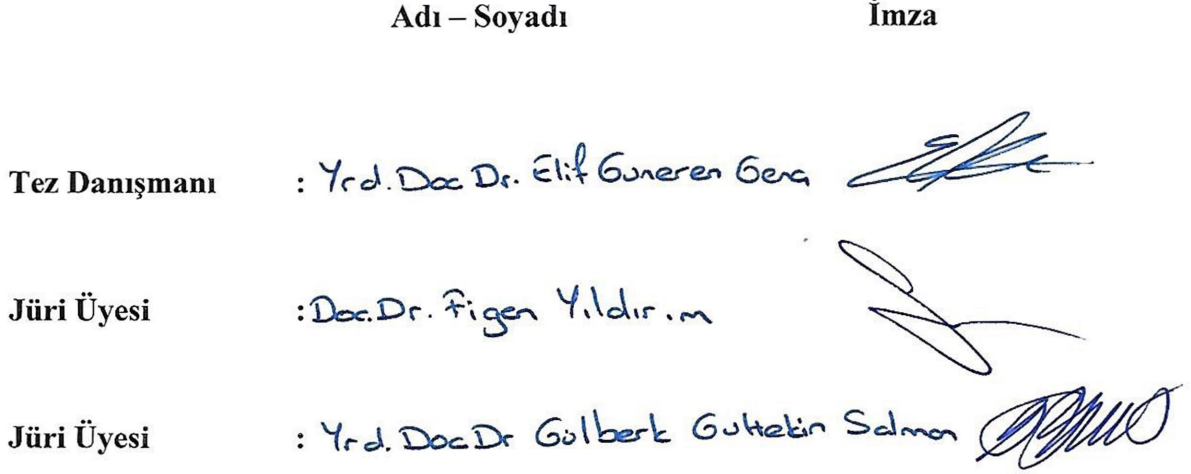 Adı – Soyadı İmza
Tez Danışmanı : Yrd. Doc Dr. Elif Guneren Genç
Jüri Üyesi : Doc. Dr. Figen Yıldırım
Jüri Üyesi : Yrd. Doc Dr Gülberk Gultekin Salman